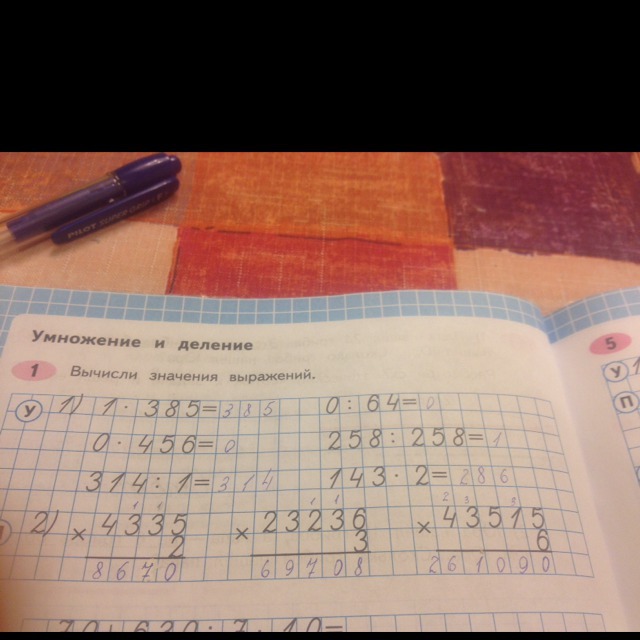 PILOT
Умножение и деление
5
1 Вычисли значения выражений.
У 1) 1 · 385 = 385 0 : 64 = 0
0 · 456 = 0 258 : 258 = 1
314 : 1 = 314 143 · 2 = 286
2) × 4335 × 23236 × 43515
2 3 6
8670 69708 261090
70 + 630 : 7 · 10 =
У 1
П